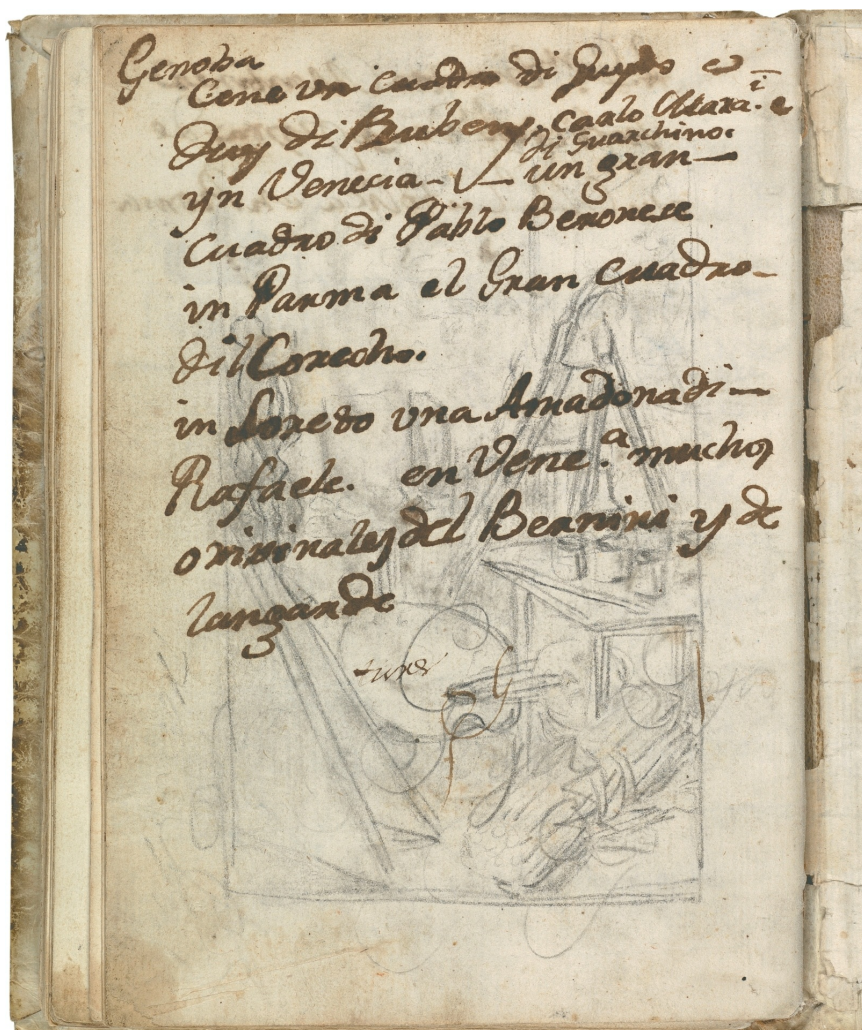 Genoba
Cene un cuadro di Guydo e
duy di Rubens, carlo Marai. e
di Guarchino.
yn Venecia - un gran
cuadro di Pablo Beronese
in Parma el Gran cuadro
dil Corecho.
in Loreto una Amadona di
Rafaele. en Vene.ª muchos
orixinales del Bernini y de
langarde